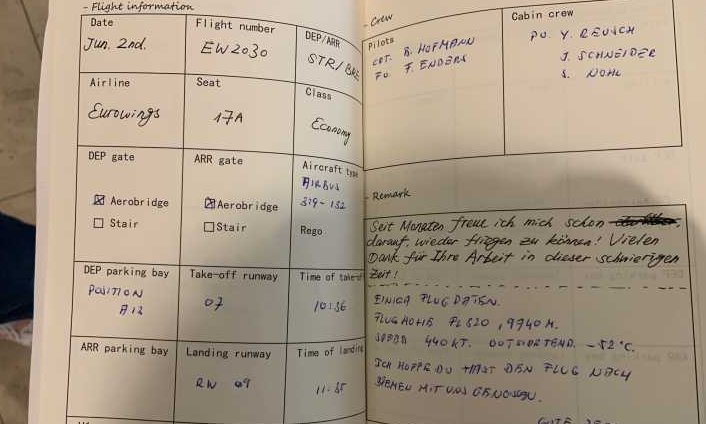 - Flight information
Date
Jun. 2nd.
Flight number
EW2030
DEP/ARR
STR/BRE
Airline
Eurowings
Seat
17A
Class
Economy
DEP gate
☒ Aerobridge
☐ Stair
ARR gate
☒ Aerobridge
☐ Stair
Aircraft type
AIRBUS
319-132
Rego
DEP parking bay
POSITION
A12
Take-off runway
07
Time of take-off
10:36
ARR parking bay
Landing runway
RW 09
Time of landing
11:35
- Crew
Pilots
CPT. B. HOFMANN
FO. F. ENDERS
Cabin crew
PU. Y. REUSCH
J. SCHNEIDER
S. NOHL
- Remark
Seit Monaten freue ich mich schon
darauf, wieder fliegen zu können! Vielen
Dank für Ihre Arbeit in dieser schwierigen
Zeit!
EINIGE FLUGDATEN.
FLUGHÖHE FL320, 9740 M.
SPEED 440KT. OUTSIDETEMP. -52°C.
ICH HOFFE DU HAST DEN FLUG NACH
BREMEN MIT UNS GENOSSEN.
GUTE